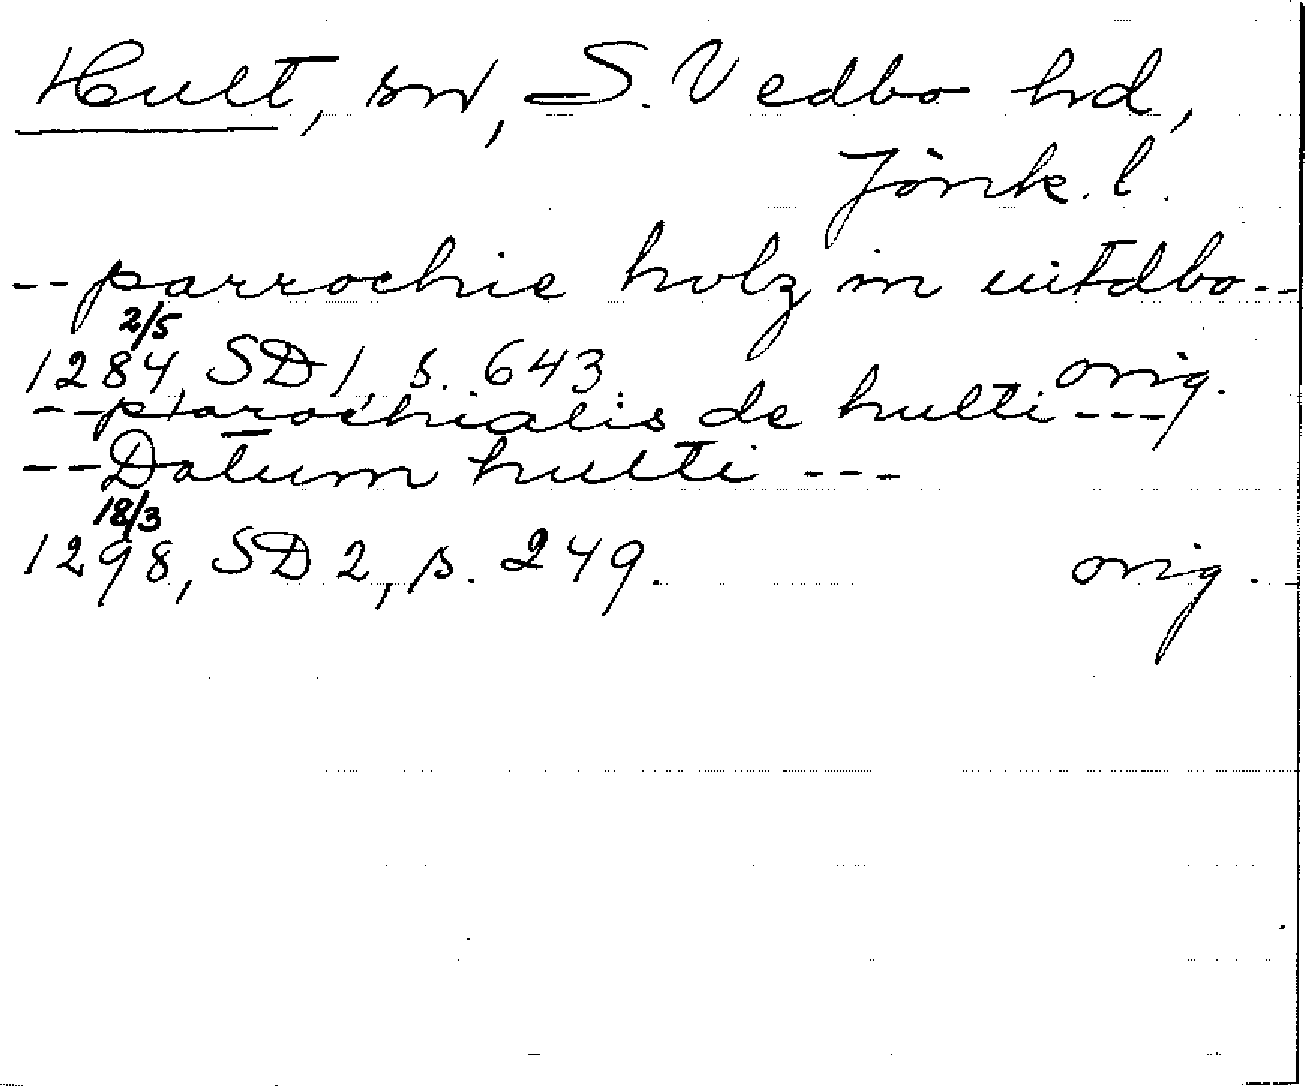 Hult, sn, S. Vedbo hd,
Jönk. l.
-- parrochie holz in uitdbo --
2/5
1284, SD 1, s. 643. orig.
-- parochialis de hulti ---
-- Datum hulti ---
18/3
1298, SD 2, s. 249. orig.